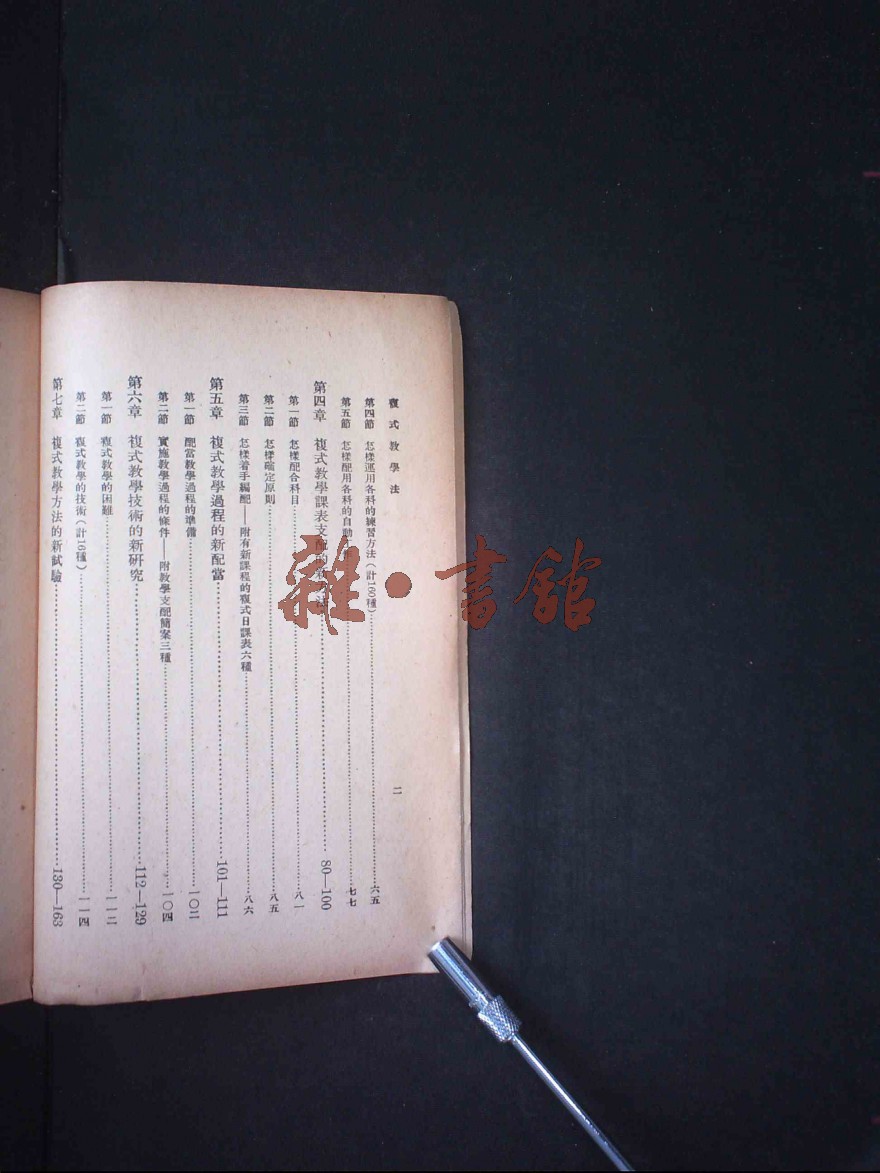 複式教學法
二
第四節 怎樣運用各科的練習方法(計160種)……六五
第五節 怎樣配用各科的自動……七七
第四章 複式教學課表支配的新……80—100
第一節 怎樣配合科目……八一
第二節 怎樣確定原則……八五
第三節 怎樣着手編配——附有新課程的複式日課表六種……八六
第五章 複式教學過程的新配當……101—111
第一節 配當教學過程的準備……一〇二
第二節 實施教學過程的條件——附教學支配簡案三種……一〇四
第六章 複式教學技術的新研究……112—129
第一節 複式教學的困難……一一二
第二節 複式教學的技術(計16種)……一一四
第七章 複式教學方法的新試驗……130—163
雜·書館